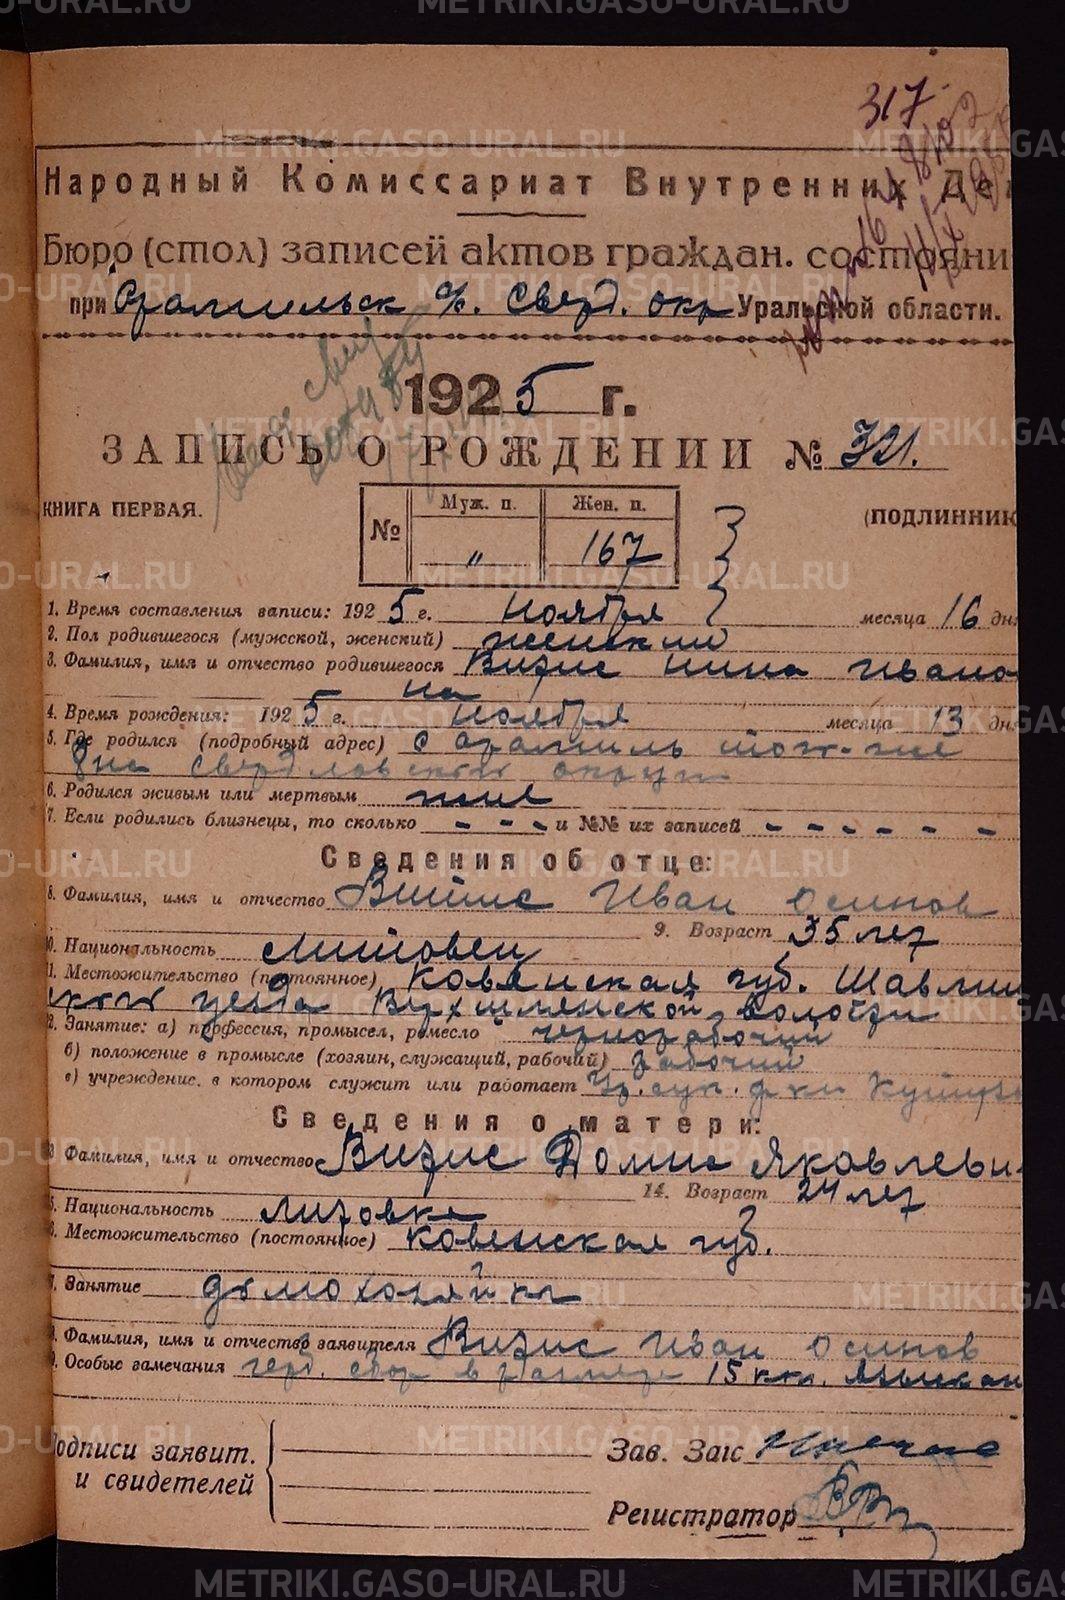 317
Народный Комиссариат Внутренних Дел
Бюро (стол) записей актов граждан. состояни
при Арамильск с/с. Сверд. окр Уральской области.
1925 г.
ЗАПИСЬ О РОЖДЕНИИ № 321.
КНИГА ПЕРВАЯ. (ПОДЛИННИК
№ Муж. п. Жен. п.
„ 167
1. Время составления записи: 1925 г. ноября месяца 16 дня
2. Пол родившегося (мужской, женский) женский
3. Фамилия, имя и отчество родившегося Витис Нина Ивано
на
4. Время рождения: 1925 г. ноября месяца 13 дня
5. Где родился (подробный адрес) с Арамиль того-же
Свердловского округа
6. Родился живым или мертвым жив
7. Если родились близнецы, то сколько - - - и №№ их записей - - - - - -
Сведения об отце:
8. Фамилия, имя и отчество Витис Иван Осипов
9. Возраст 35 лет
10. Национальность литовец
11. Местожительство (постоянное) Ковенская губ. Шавлин
ского уезда волости
12. Занятие: а) профессия, промысел, ремесло чернорабочий
б) положение в промысле (хозяин, служащий, рабочий) рабочий
в) учреждение, в котором служит или работает сук. ф-ки
Сведения о матери:
13 Фамилия, имя и отчество Витис Домна Яковлевн
14. Возраст 24 лет
15. Национальность литовка
16. Местожительство (постоянное) Ковенская губ.
17. Занятие домохозяйка
18. Фамилия, имя и отчество заявителя Витис Иван Осипов
19. Особые замечания герб. сбор в размере 15 коп. взыскан
Подписи заявит.
и свидетелей
Зав. Загс
Регистратор
METRIKI.GASO-URAL.RU